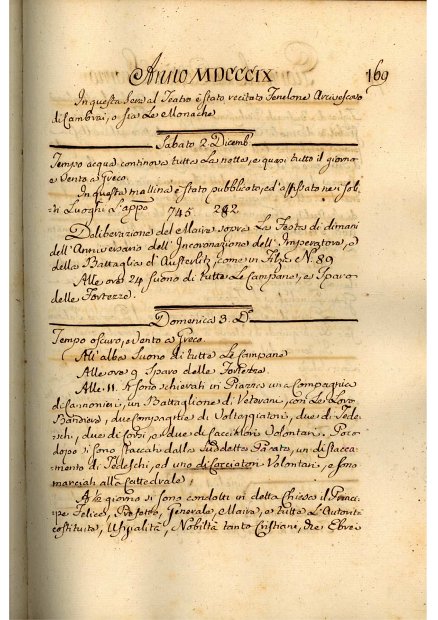 Anno MDCCCIX 169
In questa sera al Teatro è stato recitato Fenelone Arcivescovo
di Cambrai, o sia Le Monache
Sabato 2 Dicemb.
Tempo acqua continova tutta La notte, e quasi tutto il giorno
e Vento a Greco
In questa mattina è stato pubblicato, ed' affissato nei soli
ti Luoghi L'appo 745. 242.
Deliberazione del Maire sopra La Festa di dimani
dell'Anniversario dell'Incoronazione dell'Imperatore, e
della Battaglia d'Austerlitz, come in Filza N. 89
Alle ore 24 suono di tutte Le Campane, e sparo
delle Fortezze.
Domenica 3. Do
Tempo oscuro, e Vento a Greco
All'alba suono di tutte Le Campane
Alle ore 9 sparo delle Fortezze
Alle 11. si sono schierati in Piazza una Compagnia
di Cannonieri, un Battaglione di Veterani, con Le Loro
Bandiere, due Compagnie di Volteggiatori, due di Tede
schi, due di Corsi, e due di Cacciatori Volontari. Poco
dopo si sono staccati dalla suddetta Parata, un distacca
mento di Tedeschi, ed uno di Cacciatori Volontari, e sono
marciati alla Cattedrale,
A ½ giorno si sono condotti in detta Chiesa il Princi
pe Felice, Prefetto, Generale, Maire, e tutte L'Autorità
costituite, Uffizialità, Nobiltà tanto Cristiani, che Ebrei